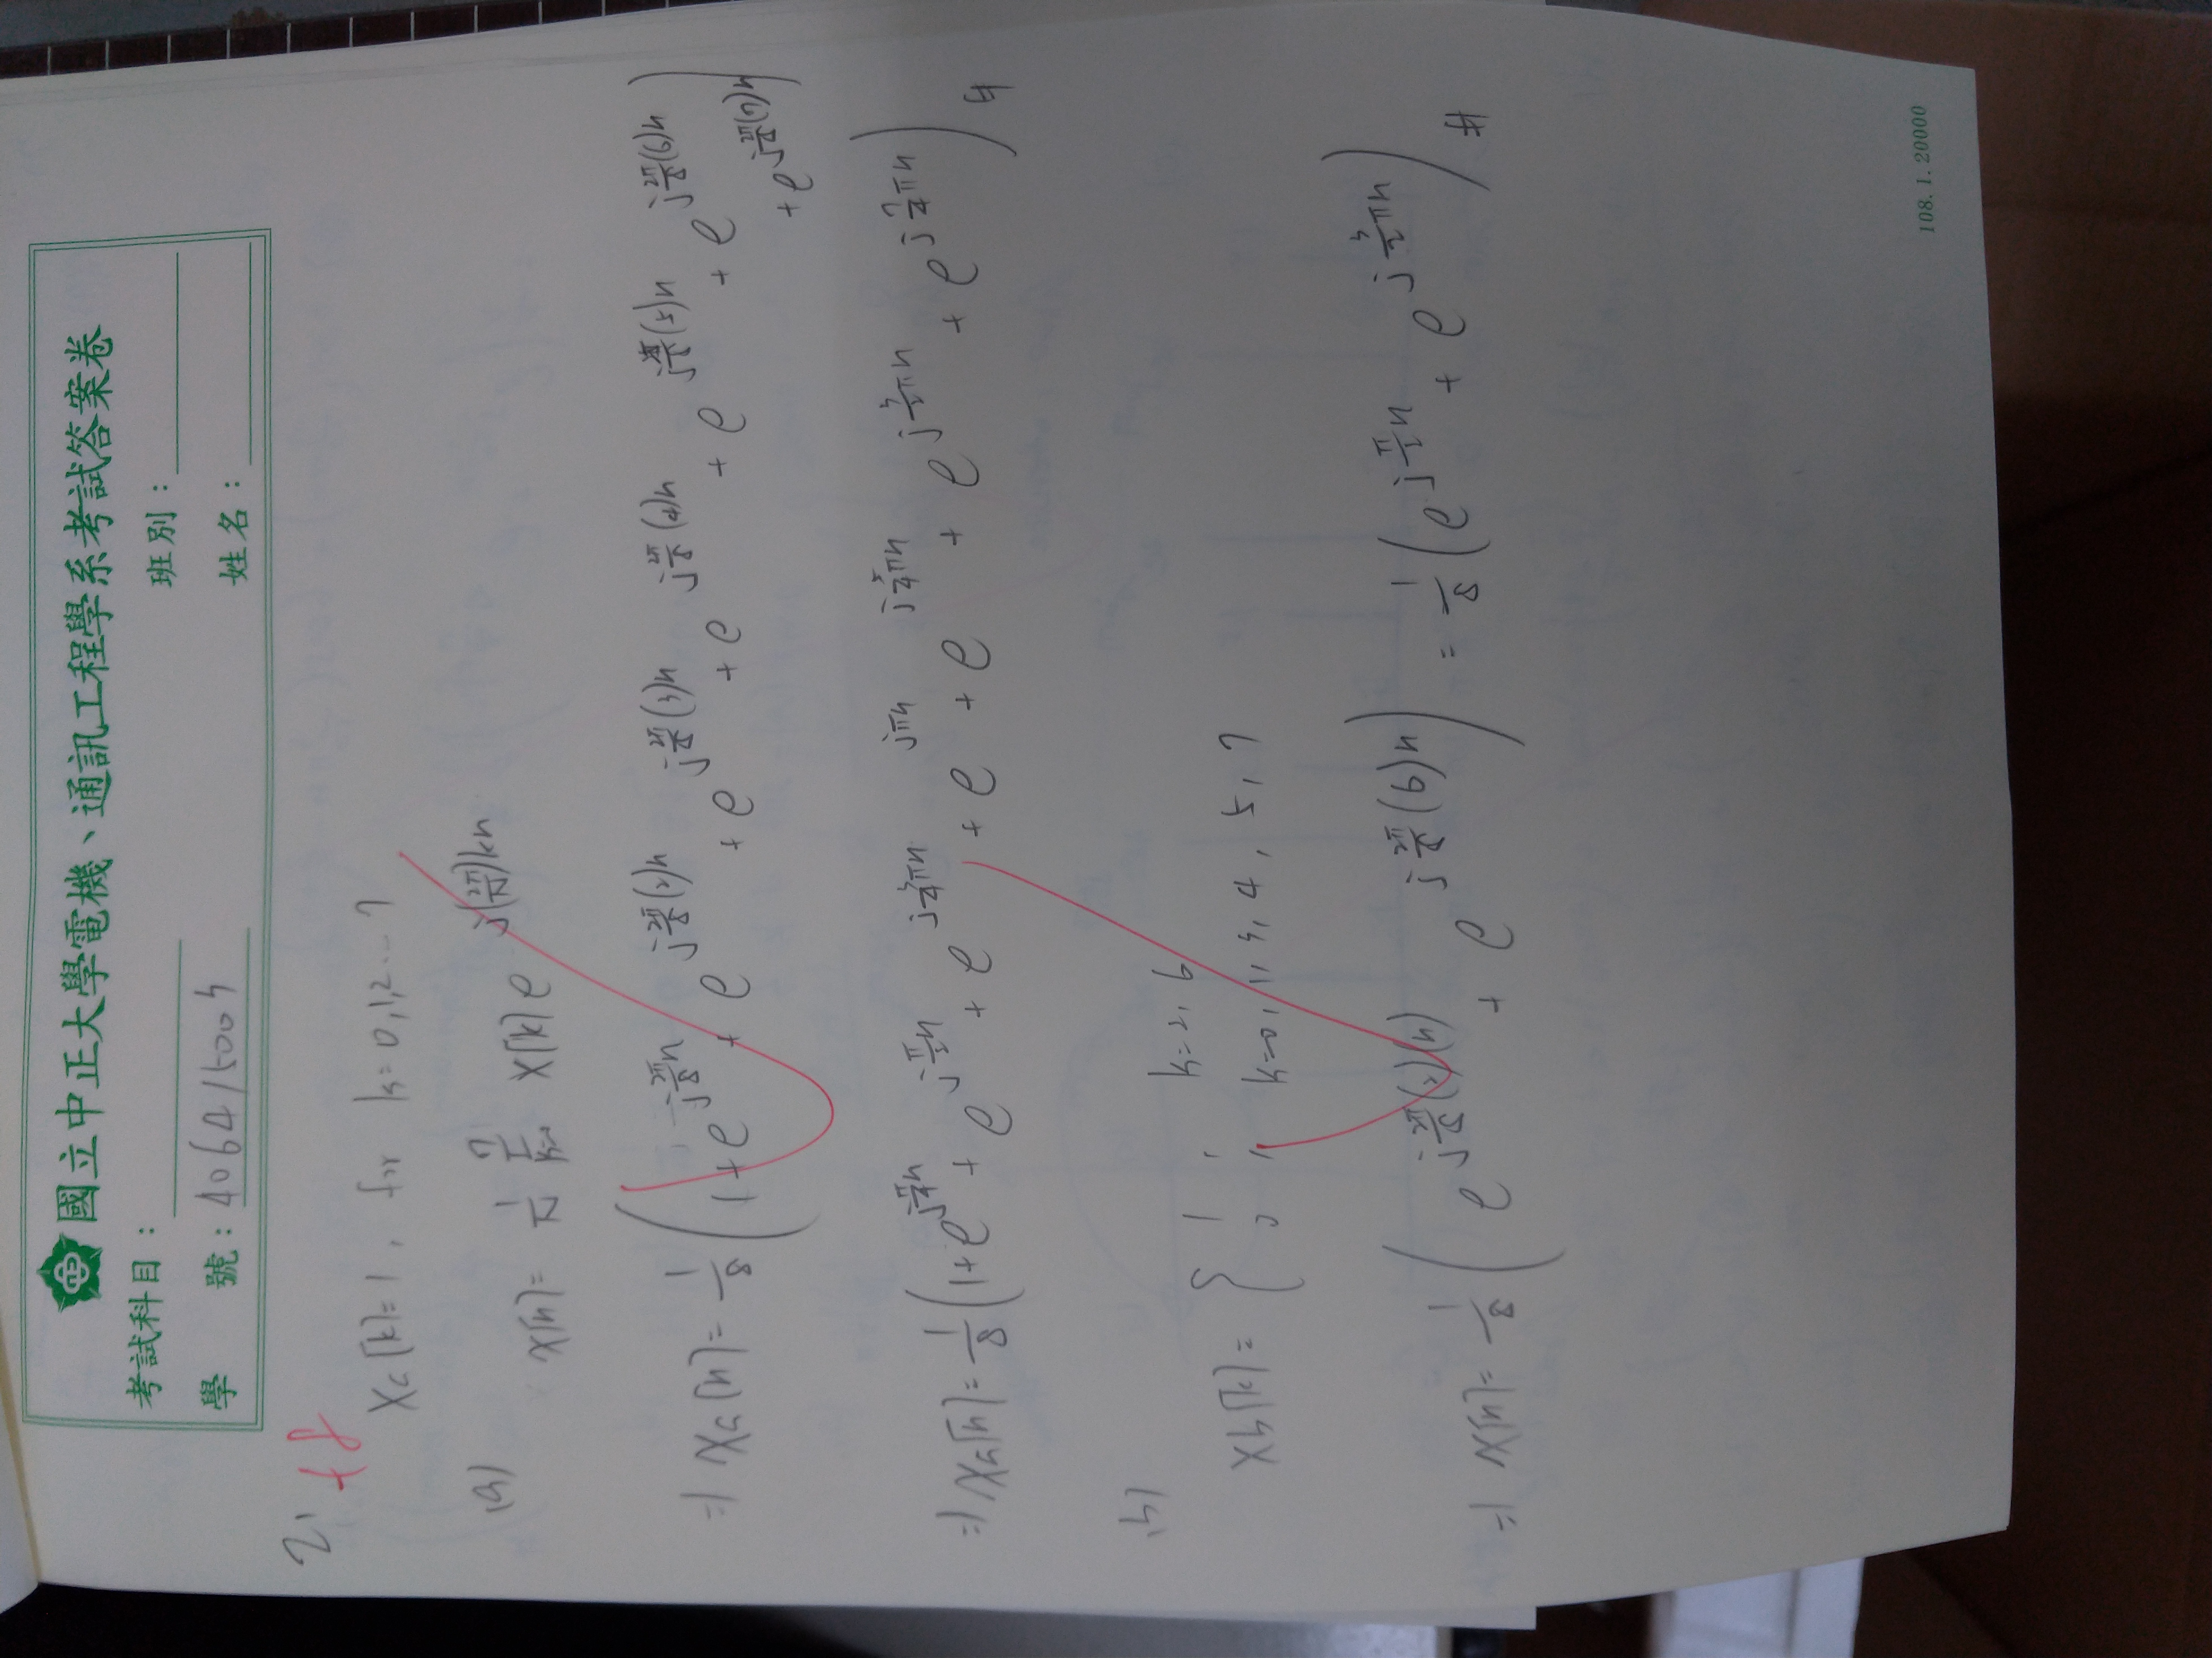 國立中正大學電機、通訊工程學系考試答案卷
考試科目：
班別：
學 號：406415003
姓名：
2.
+8
Xa[k]=1, for k=0,1,2...7
(a)
x[n]= 1/N Σ_{k=0}^{7} X[k] e^{j(2π/N)kn}
⇒ xa[n]= 1/8 (1 + e^{j2π/8 n} + e^{j2π/8(2)n} + e^{j2π/8(3)n} + e^{j2π/8(4)n} + e^{j2π/8(5)n} + e^{j2π/8(6)n}
+ e^{j2π/8(7)n})
⇒ xa[n]= 1/8 (1 + e^{jπ/4 n} + e^{jπ/2 n} + e^{j3/4 πn} + e^{jπn} + e^{j5/4 πn} + e^{j3/2 πn} + e^{j7/4 πn}) #
(b)
Xb[k]= { 1, k=2, 6
0, k=0, 1, 3, 4, 5, 7
⇒ x[n]= 1/8 (e^{j2π/8(2)(n)} + e^{j2π/8(6)n}) = 1/8 (e^{jπ/2 n} + e^{j3/2 πn}) #
108.1.20000